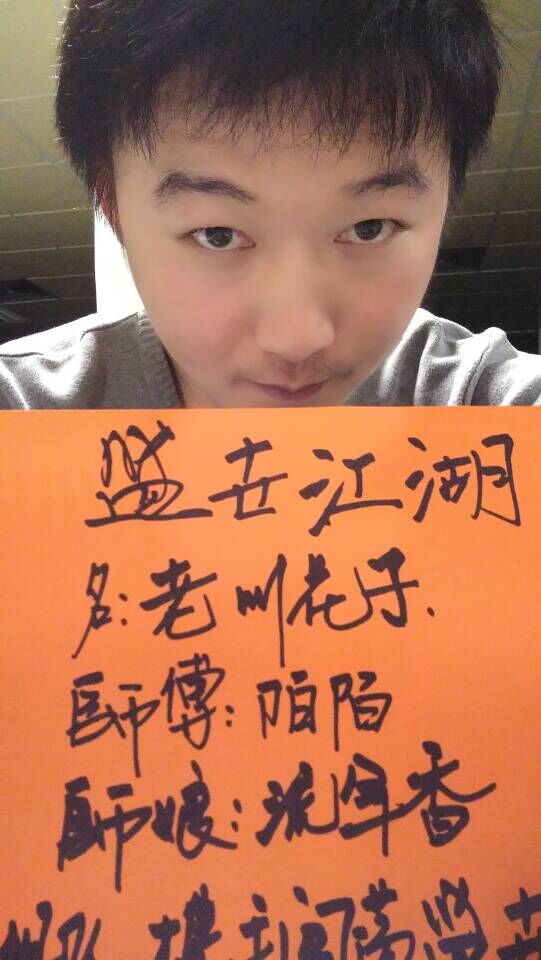 盛世江湖
名:老叫花子.
師傅:陌陌
師娘:流年香